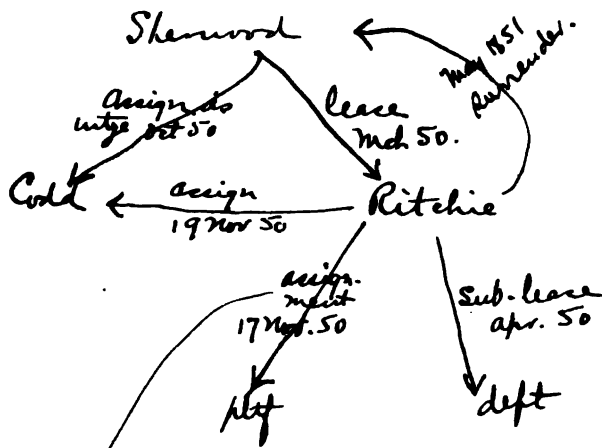 Sherwood
May 1851
Surrender.
assign as
mtge Oct 50
lease
Mch 50.
Codd
assign
19 Nov 50
Ritchie
assign-
ment
17 Nov. 50
sub-lease
apr. 50
pltf
deft